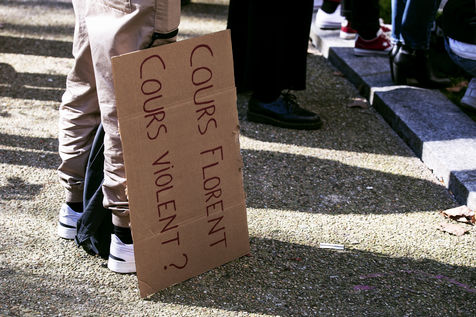 COURS FLORENT
COURS VIOLENT ?